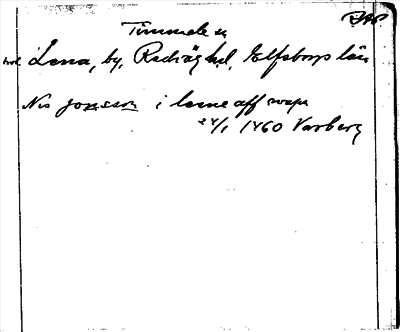 Timmele sn
Lena, by, Redväg hd, Elfsborgs län
Nis Jonsson i Lene aff wapn
24/1 1460 Varberg